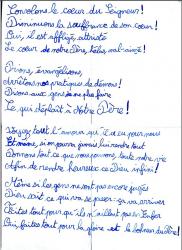 Consolons le cœur du Seigneur!
Diminuons la souffrance de son cœur!
Oui, il est affligé, attristé
Le cœur de notre Père, hélas mal-aimé!
Prions, évangélisons,
Arrêtons nos pratiques de démons!
Disons aux gens de ne plus faire
Ce qui déplaît à Notre Père!
Voyez tout l'amour qu'il a eu pour nous
Et même, si on pourra jamais lui rendre tout
Donnons tout ce que nous pouvons, toute notre vie
Afin de rendre heureux ce Dieu infini!
Même si les gens ne sont pas encore jugés
Dieu sait ce qui va se passer, ça va arriver
Faites tout pour qu'ils n'aillent pas en Enfer
Oui, faites tout pour la gloire et le bonheur du Père!